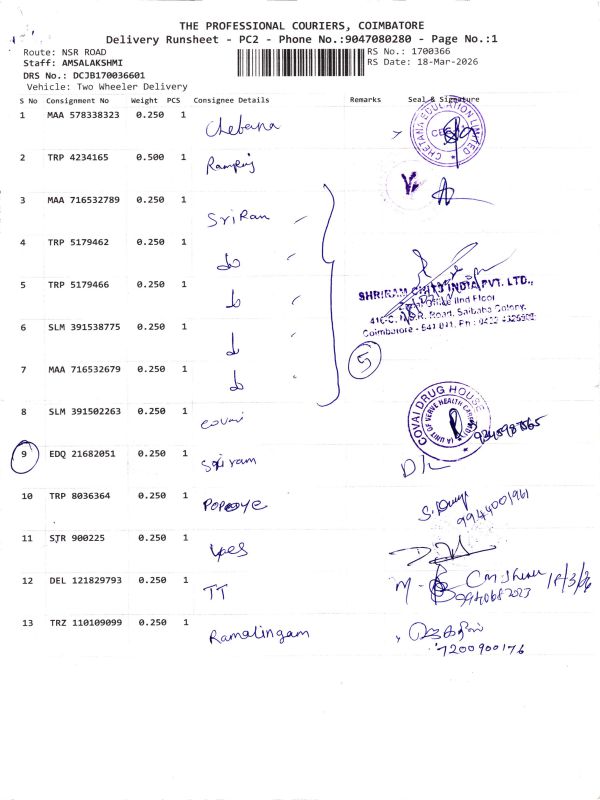 THE PROFESSIONAL COURIERS, COIMBATORE
Delivery Runsheet - PC2 - Phone No.:9047080280 - Page No.:1
Route: NSR ROAD RS No.: 1700366
Staff: AMSALAKSHMI RS Date: 18-Mar-2026
DRS No.: DCJB170036601
Vehicle: Two Wheeler Delivery
S No Consignment No Weight PCS Consignee Details Remarks Seal & Signature
1 MAA 578338323 0.250 1 Chetana CHETANA EDUCATION LIMITED
2 TRP 4234165 0.500 1
3 MAA 716532789 0.250 1 SriRam
4 TRP 5179462 0.250 1 do
5 TRP 5179466 0.250 1 do
SHRIRAM CHITS INDIA PVT. LTD.,
IInd Floor
416-C, N.S.R. Road, Saibaba Colony,
Coimbatore - 641 011. Ph : 0422
6 SLM 391538775 0.250 1 do
7 MAA 716532679 0.250 1 do
5
8 SLM 391502263 0.250 1 covai COVAI DRUG HOUSE (A UNIT OF VERVE HEALTH CARE
9 EDQ 21682051 0.250 1 Sriram
10 TRP 8036364 0.250 1 POPOYE 9944001961
11 SJR 900225 0.250 1
12 DEL 121829793 0.250 1 TT 18/3/26
9940682023
13 TRZ 110109099 0.250 1 Ramalingam
7200900176